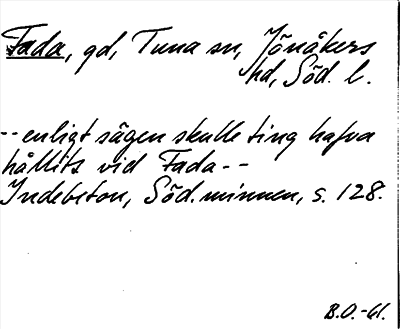 Fada, gd, Tuna sn, Jönåkers
hd, Söd. l.
-- enligt sägen skulle ting hafva
hållits vid Fada --
Indebetou, Söd. minnen, s. 128.
B.O.-61.